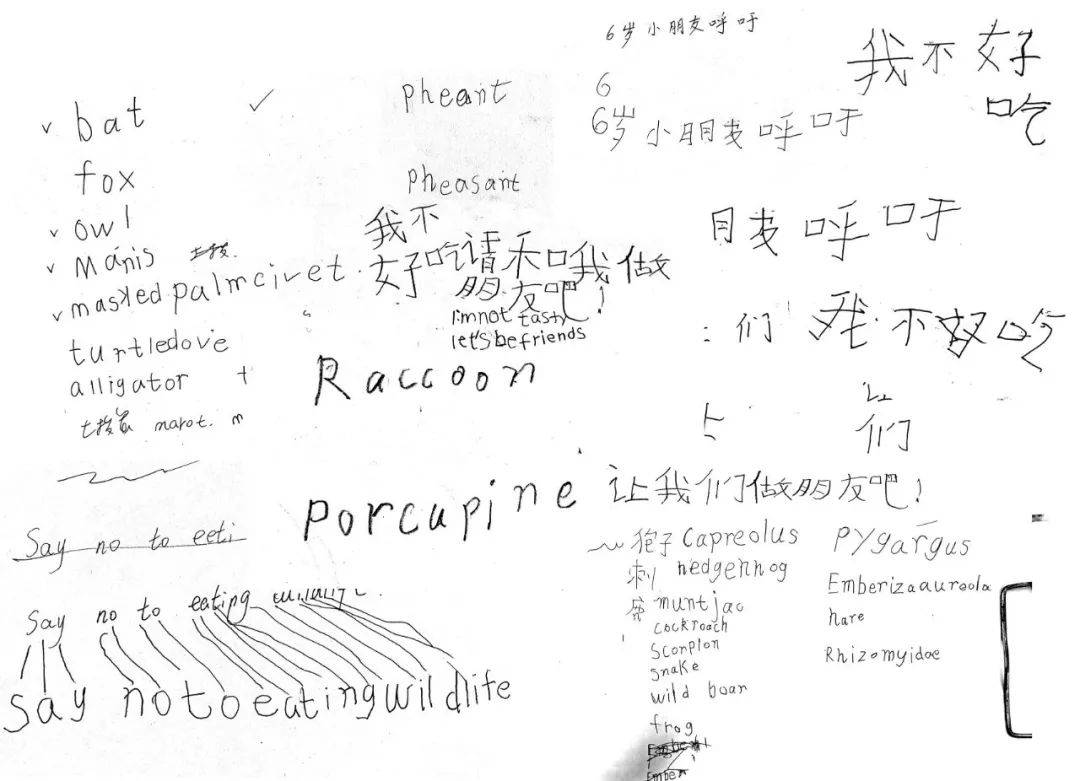 bat
fox
owl
manis
masked palmcivet
turtledove
alligator
Say no to eeti
Say no to eating
Say no to eating wildlife
pheant
pheasant
我不
好吃请和我做
朋友吧!
i'm not tasty
let's be friends
Raccoon
porcupine
6岁小朋友呼吁
6
6岁小朋友呼吁
我不好
吃
朋友呼吁
:们 我不好吃
让
们
让我们做朋友吧!
狍子 capreolus pygargus
刺 hedgehhog
muntjac
cockroach
scorpion
snake
wild boar
frog
Ember
Emberizaaureola
hare
Rhizomyidae